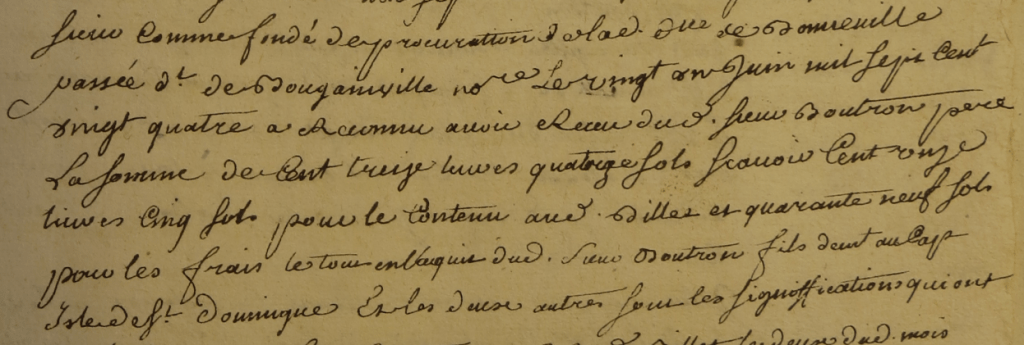 sieur Comme fondé de procuration de lad. due de Domreville
passée dt. de Bougainville nore Le vingt un Juin mil sept Cent
vingt quatre a Reconnu avoir Receu dud. sieur Boutron pere
La somme de Cent treize livres quatorze sols scavoir Cent onze
livres Cinq sols pour le Contenu aud. Billet et quarante neuf sols
pour les frais le tout en l'aquit dud. Sieur Boutron fils demt au Cap
Isle de St. Dominique Et les deux autres sont les significations qui ont